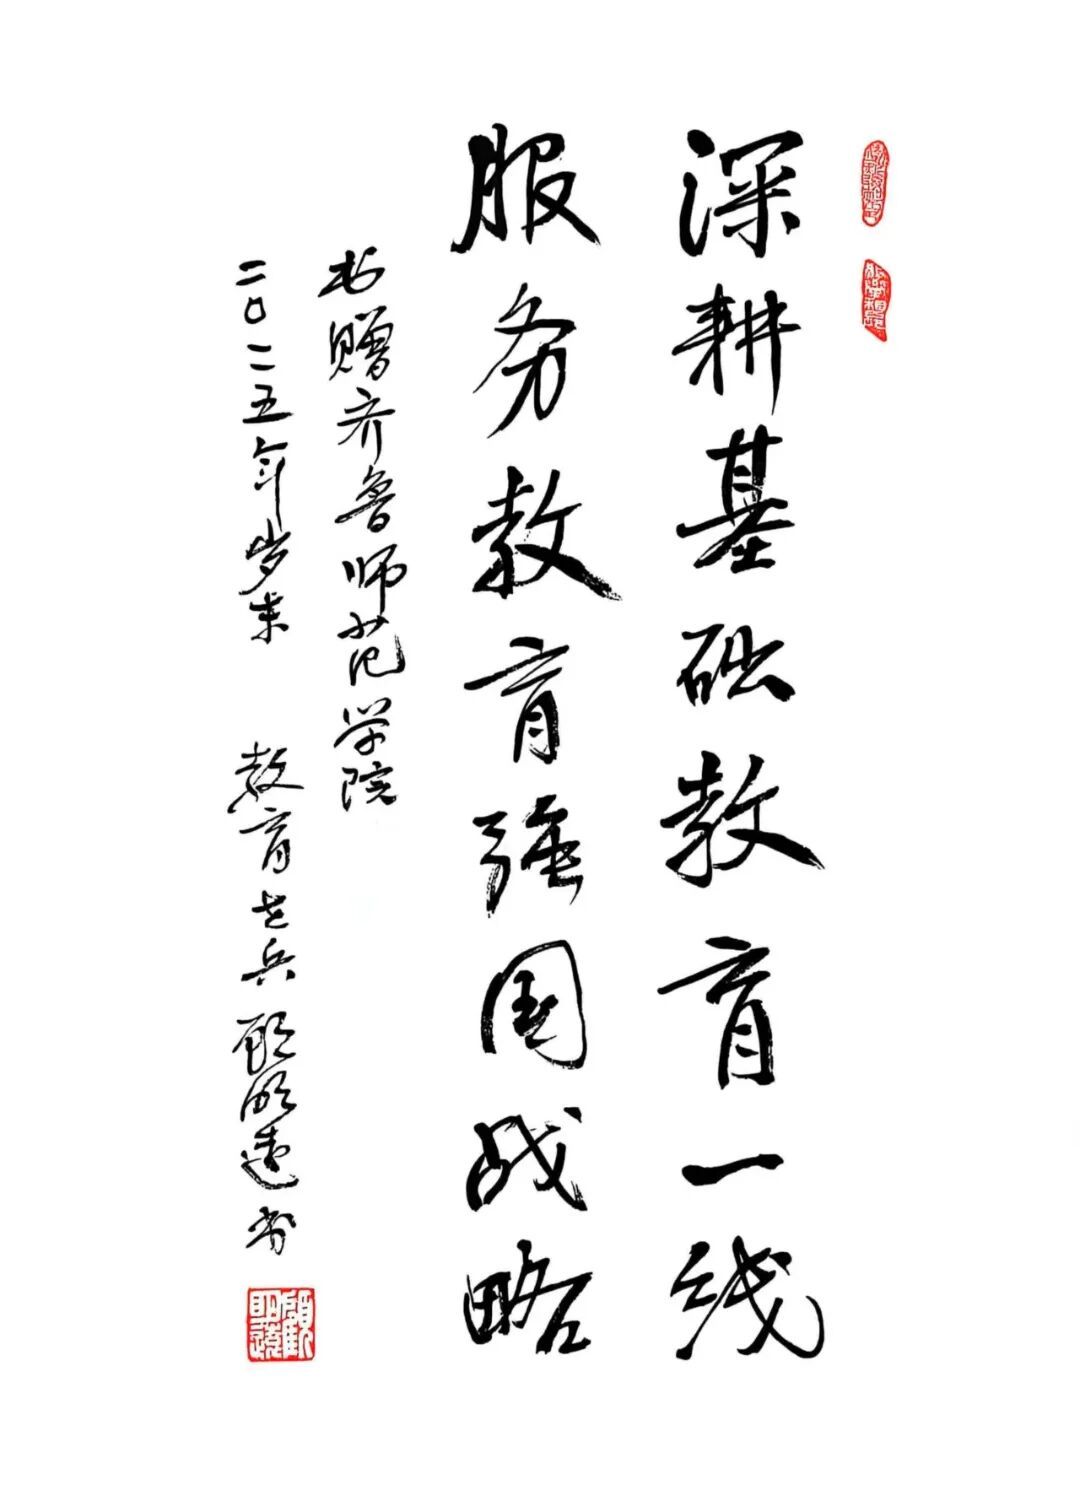 深耕基础教育一线
服务教育强国战略
书赠齐鲁师范学院
二〇二五年岁末 教育老兵顾明远书
顾明远